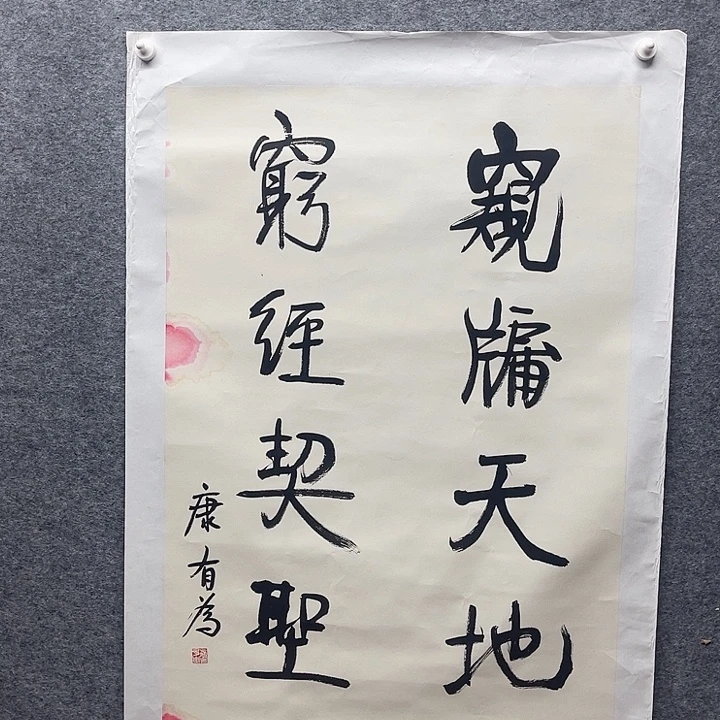 窺牖天地
窮經契聖
康有為